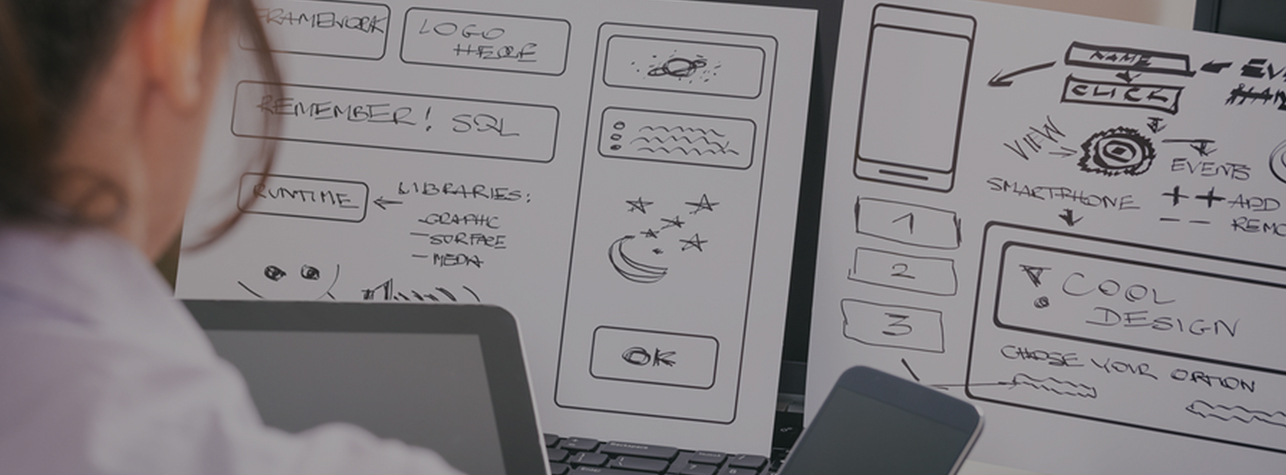 FRAMEWORK
LOGO
HERE
REMEMBER! SQL
RUNTIME
LIBRARIES:
- GRAPHIC
- SURFACE
- MEDIA
OK
NAME
CLICK
VIEW
EVENTS
SMARTPHONE
++ ADD
-- REMO
1
2
3
! COOL
DESIGN
CHOOSE YOUR OPTION